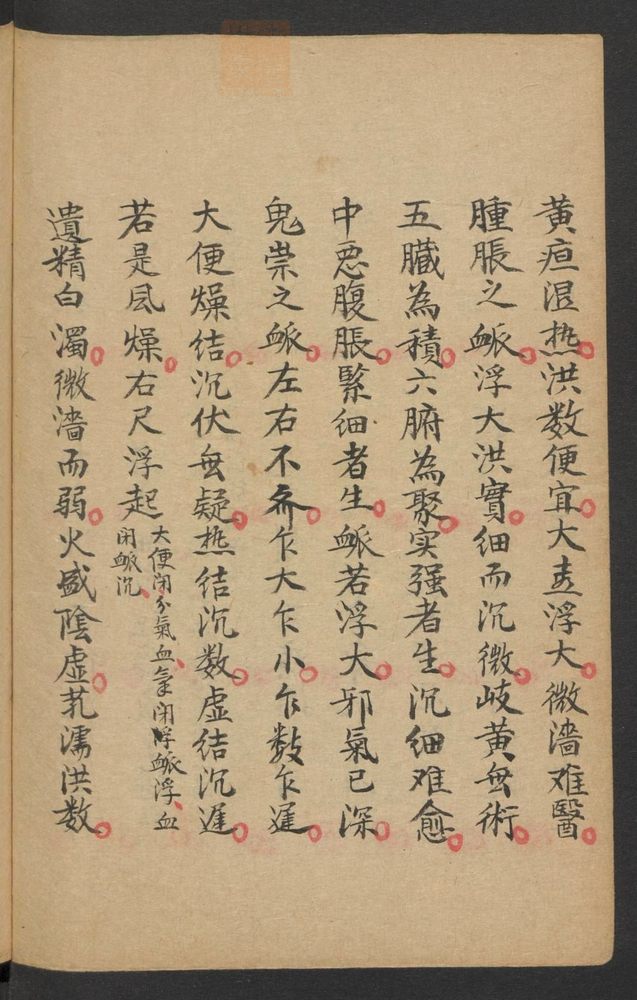 黄疸湿热洪数便宜大忌浮大微濇难醫
腫脹之脈浮大洪實细而沉微岐黄無術
五臓為積六腑為聚实强者生沉细难愈
中恶腹脹緊细者生脈若浮大邪氣已深
鬼祟之脈左右不齐乍大乍小乍数乍遲
大便燥结沉伏無疑热结沉数虚结沉遲
若是風燥右尺浮起
大便闭分氣血氣闭脈浮血
闭脈沉
遺精白濁微濇而弱火盛陰虚芤濡洪数